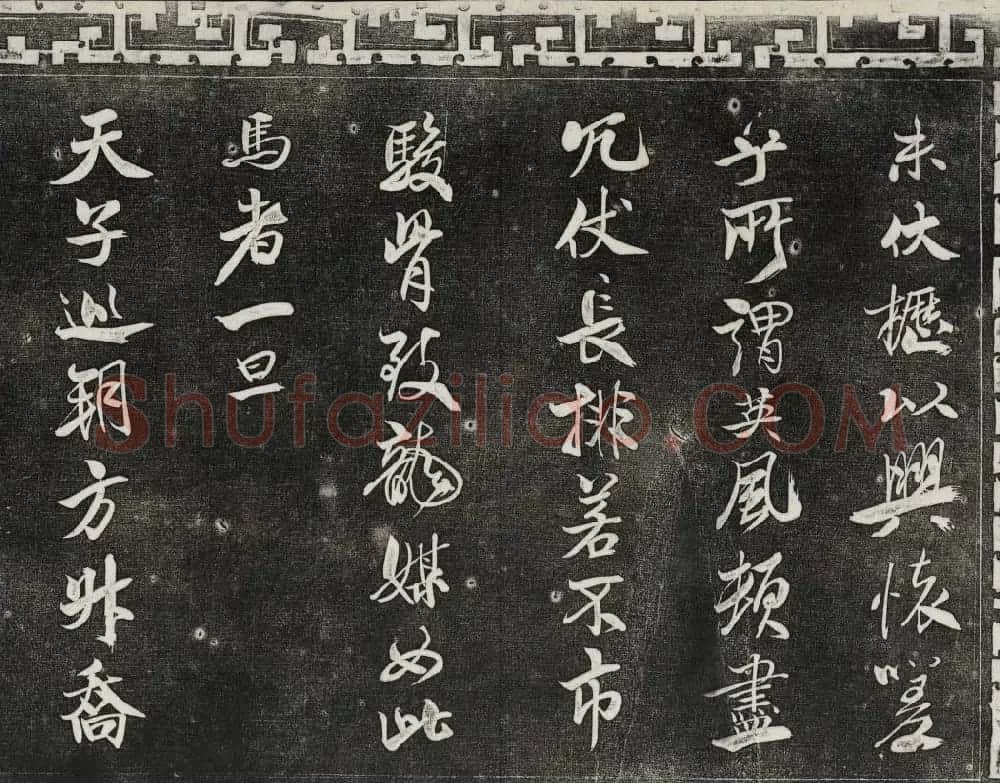 未伏櫪以興懷嗟
乎所謂英風頓盡
冗仗長排若不市
駿骨致龍媒如此
馬者一旦
天子巡朔方升喬
Shufaziliao.COM